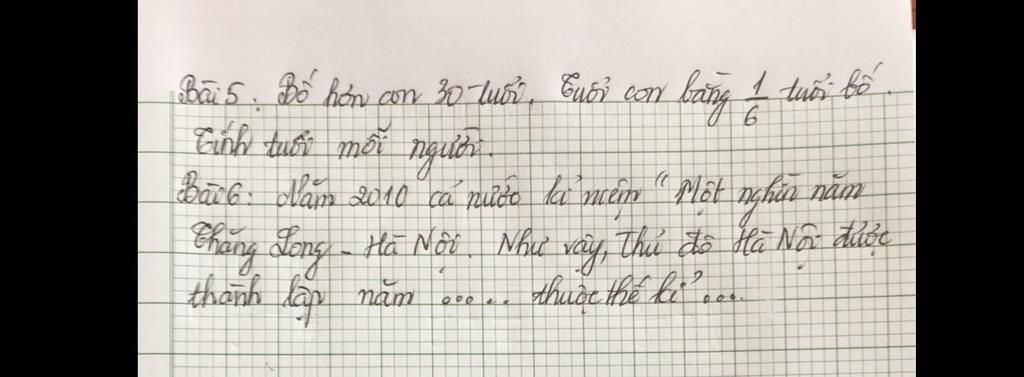 Bài 5: Bố hơn con 30 tuổi. Tuổi con bằng 1/6 tuổi bố.
Tính tuổi mỗi người.
Bài 6: Năm 2010 cả nước kỉ niệm "Một nghìn năm
Thăng Long - Hà Nội. Như vậy, Thủ đô Hà Nội được
thành lập năm ..... thuộc thế kỉ ....